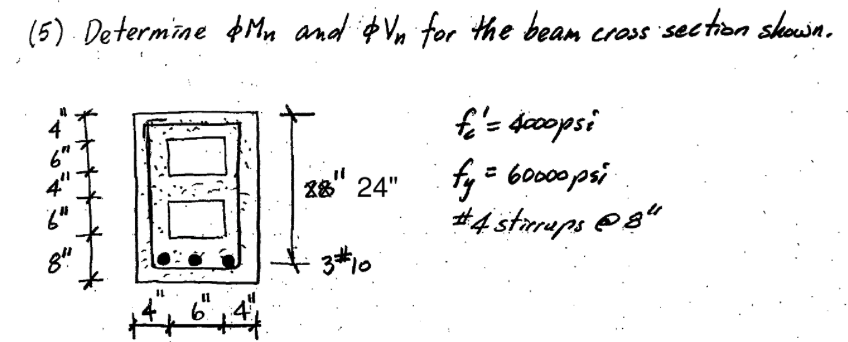 (5) Determine ϕMn and ϕVn for the beam cross section shown.
4"
6"
4"
6"
8"
24"
3#10
4" 6" 4"
fc' = 4000psi
fy = 60000psi
#4 stirrups @ 8"